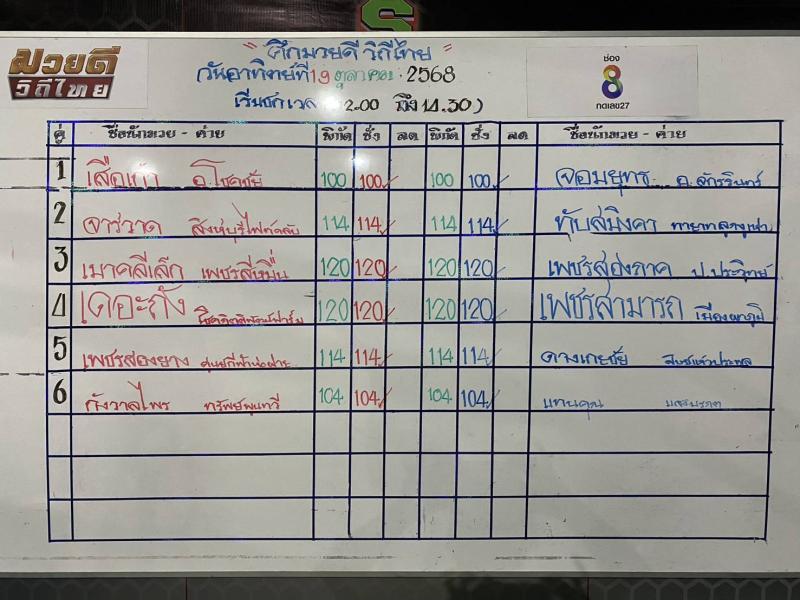 มวยดี
วิถีไทย
" ศึกมวยดี วิถีไทย "
วันอาทิตย์ที่ 19 ตุลาคม 2568
2.00 ถึง 14.30)
ช่อง
8
กดเลข27
คู่ ชื่อนักมวย - ค่าย พิกัด ชั่ง ลด พิกัด ชั่ง ลด ชื่อนักมวย - ค่าย
1 เสือเก้า อ.โชคชัย 100 100 100 100 จอมยุทธ อ.จักรรินทร์
2 จารวาด สิงห์บุรีไฟท์คลับ 114 114 114 114 ทับสมิงคา
3 เมาคลีเล็ก เพชรสี่หมื่น 120 120 120 120 เพชรสองภาค ป.ประวิทย์
4 เดอะกัง 120 120 120 120 เพชรสามารถ เมืองผาภูมิ
5 เพชรสองยาง 114 114 114 114 ดาวเกยชัย
6 กังวาลไพร ทรัพย์พูนทวี 104 104 104 104 แทนคุณ